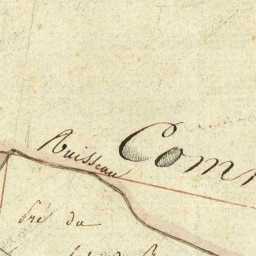 Ruisseau
Com
Pré du